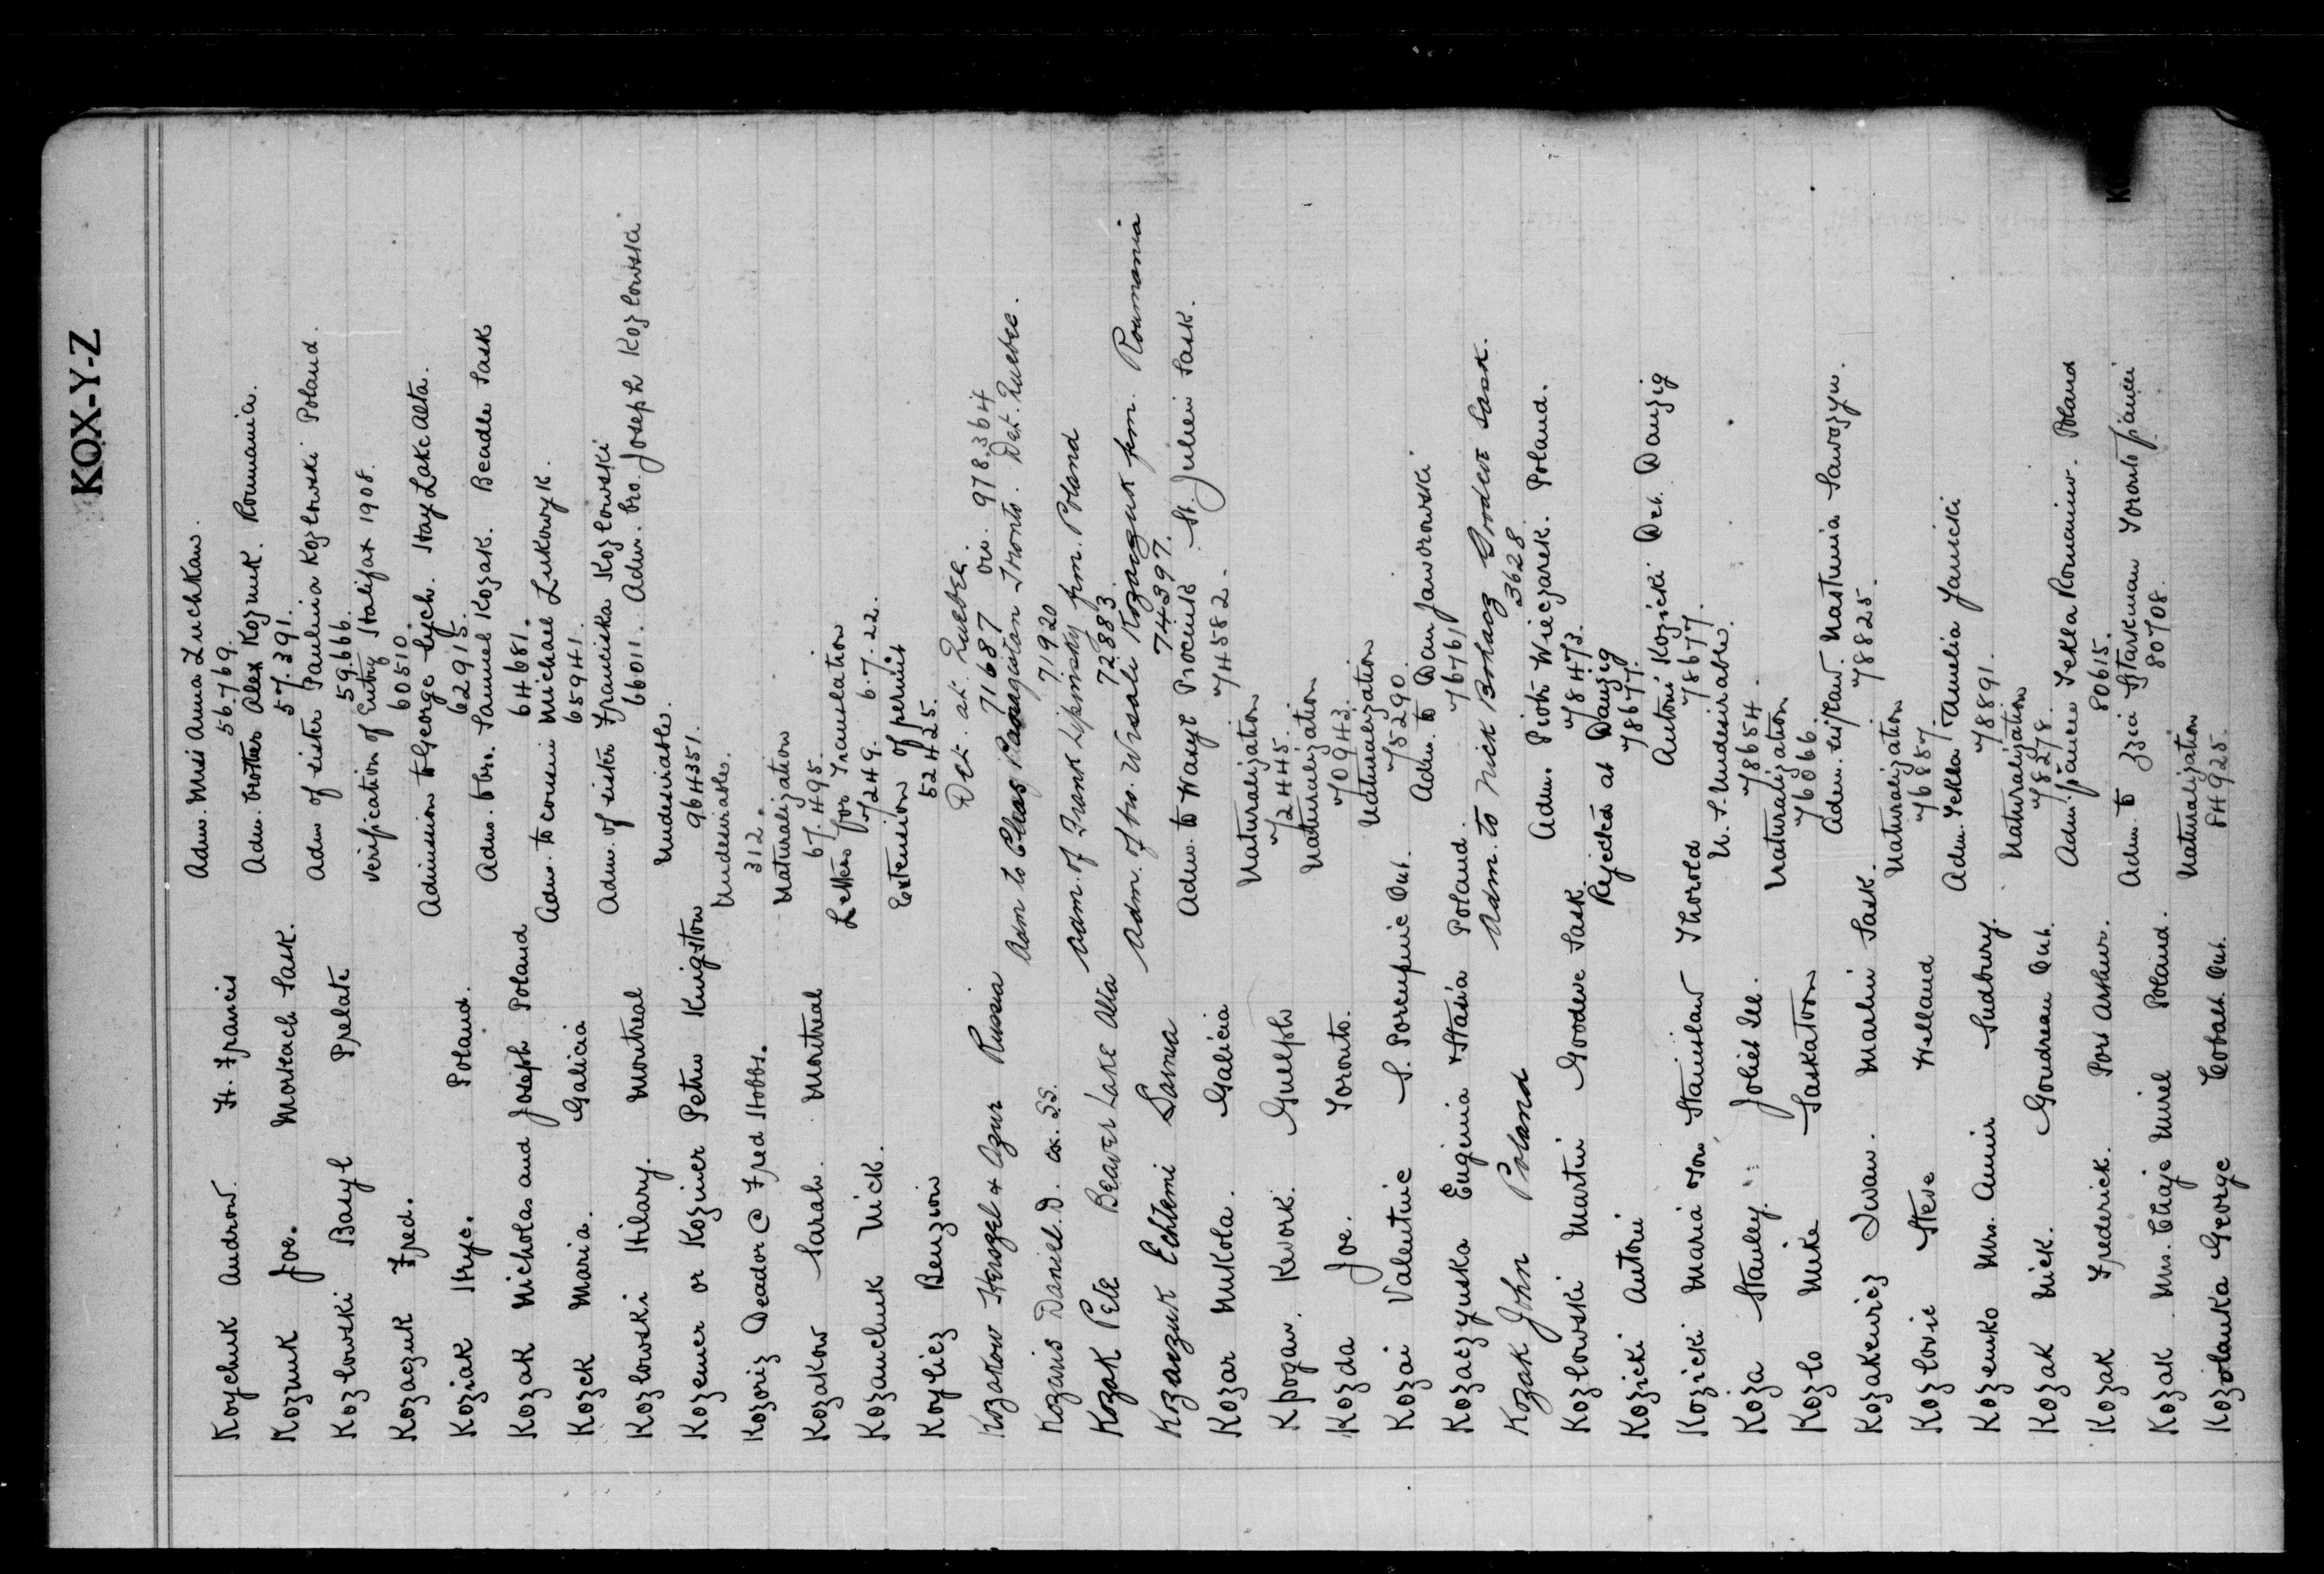 KOX-Y-Z
Koychuk Andrew. Ft. Francis Adm. Miss Anna Luchkaw. 56769.
Kozmuk Joe. Mortlach Sask. Adm. brother Alex Kozmuk. Roumania. 57391.
Kozlowski Basyl Prelate Adm of sister Paulina Kozlowski Poland. 59666.
Kozaczuk Fred. Verification of Entry Halifax 1908. 60510
Koziak Hryc. Poland. Admission to George Lych. Hay Lake Alta. 62915.
Kozak Nicholas and Joseph Poland Adm. to bro. Samuel Kozak. Beadle Sask 64681.
Kozck Maria. Galicia Adm. to cousin Michael Lukowyk. 65941.
Kozlowski Hilary. Montreal Adm. of sister Franciska Kozlowski 66011. Adm. bro. Joseph Kozlowski
Kozemer or Kozimer Petru Kingston Undesirable. 964351.
Kozoriz Deador @ Fred Hobbs. Undesirable. 312.
Kozakow Sarah. Montreal Naturalization 67495.
Kozanchuk Nick. Letters for Translation 7249. 6.7.22.
Koylicz Benzion Extension of permit 52425.
Kozakow Herszel & Azur Russia Det. at Quebec. 71687 on. 978364
Kozaris Daniel D. ex. SS. Adm to Chas Panagistan Toronto. Det. Quebec. 71920
Kozak Pete Beaver Lake Alta Adm. of Frank Lipinsky frm. Poland 72883.
Kozaczuk Echtemi Sarnia Adm. of bro. Wissali Kozaczuk frm. Roumania 74397.
Kozar Mikola. Galicia Adm. to Wasyl Procenk St. Julien Sask. 74582.
Kpogan. Kework. Guelph Naturalization 72445.
Kozda Joe. Toronto. Naturalization 70943.
Kozai Valentine S. Porcupine Ont. Naturalization 75290.
Kozaczynska Eugenia & Stasia Poland. Adm. to Dan Jaworowski 76761
Kozak John Poland Adm. to Nick Bohacz Goodeve Sask. 3628.
Kozlowski Martin Goodeve Sask. Adm. Piotr Wieczarek. Poland. 78473.
Kozicki Antoni Rejected at Danzig 78677.
Kozicki Maria son Stanislaw Thorold Antoni Kozicki Det. Danzig 78677.
Koza Stanley. Joliet Ill. U.S. Undesirable. 78654.
Kozlo Mike Saskatoon Naturalization 76066.
Kozakewicz Iwan. Marlin Sask. Adm. Nastunia 78825.
Kozlovic Steve Welland Naturalization 76887
Kozenko Mrs. Annie Sudbury. Adm. Tekla Amelia Janicki 78891.
Kozak Nick. Goudreau Ont. Naturalization 78278.
Kozak Frederick. Port Arthur. Adm. fiancee Tekla Romaniw. Poland 80615.
Kozak Mrs. Chaje Mirel Poland. Adm. to Izzie Starkman Toronto fiancee 80708.
Kozolanka George Cobalt Ont. Naturalization 84925.